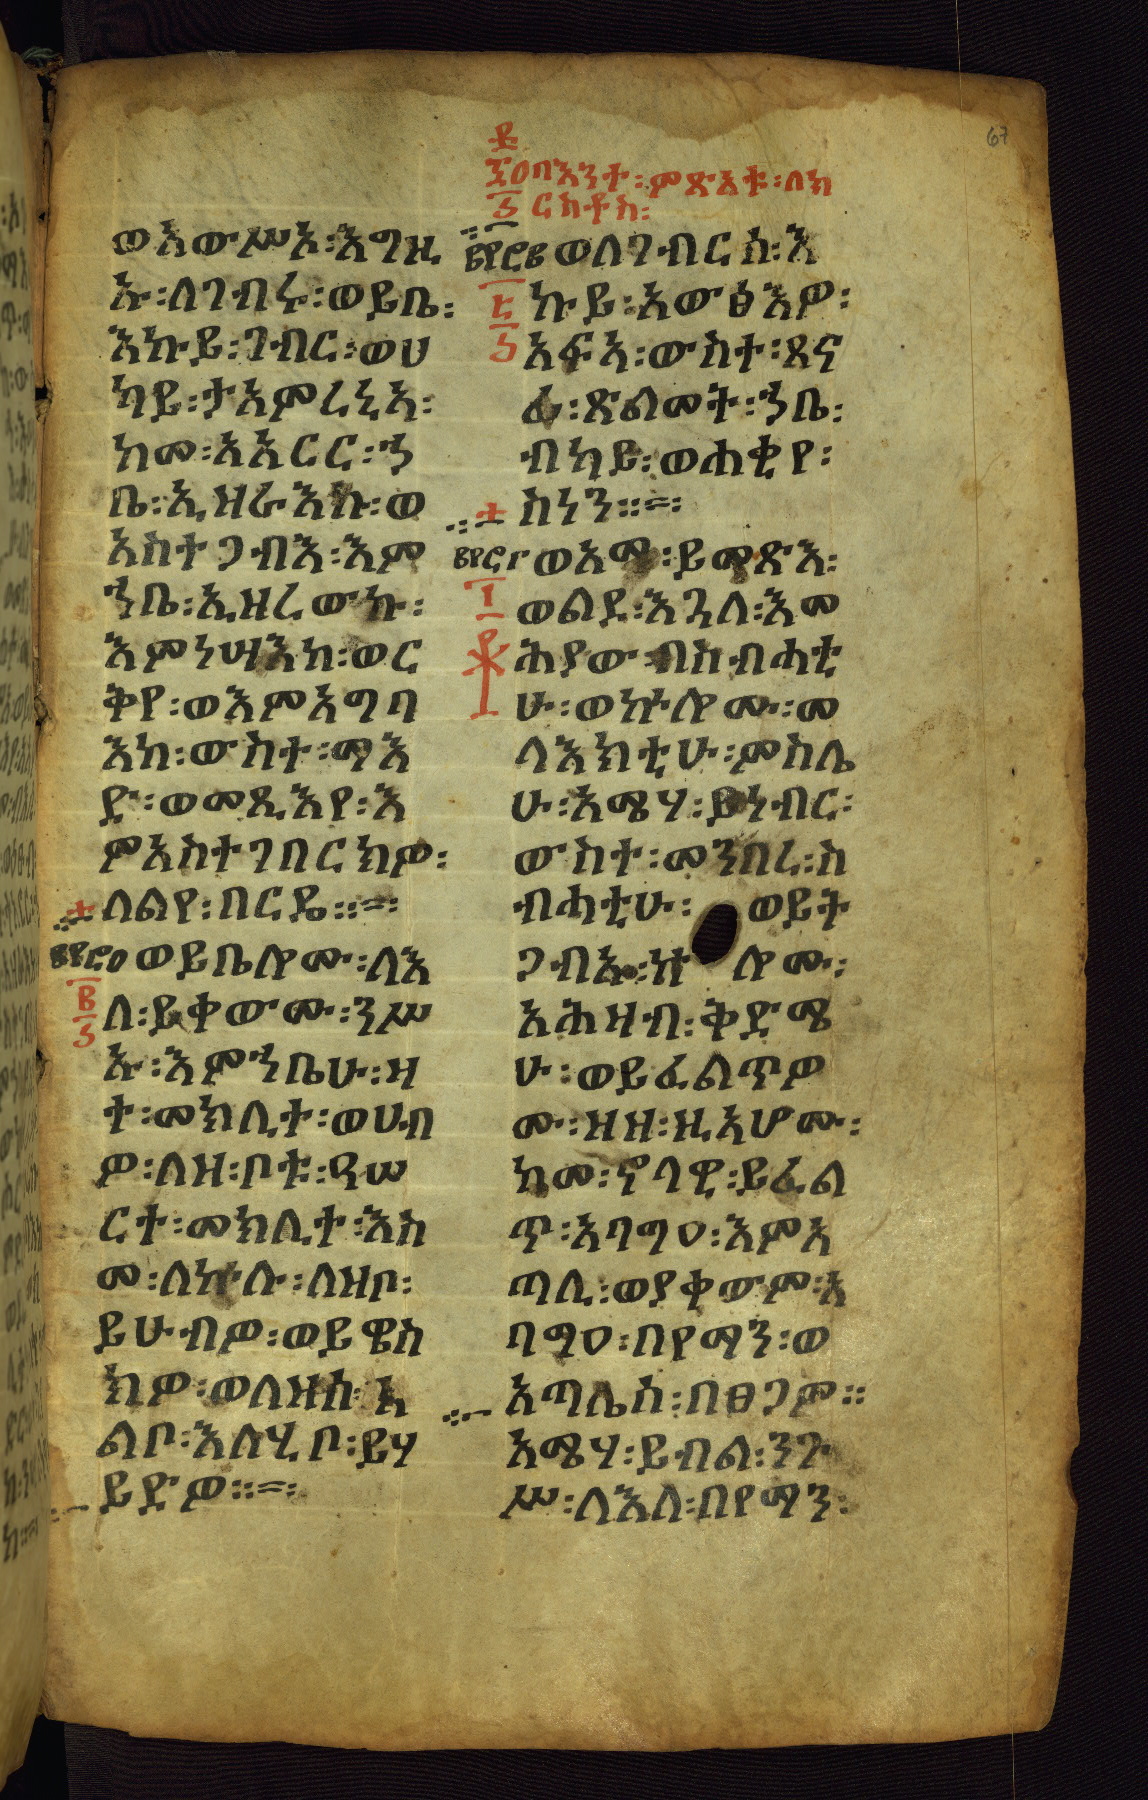 67
፷፬በእንተ፡ምጽአቱ፡ለክ
ርስቶስ፡
ወአውሥአ፡እግዚ
ኡ፡ለገብሩ፡ወይቤ፡
እኩይ፡ገብር፡ወሀ
ካይ፡ታአምረኒኣ፡
ከመ፡አአርር፡ኀ
ቤ፡ኢዘራእኩ፡ወ
አስተጋብእ፡እም
ኀቤ፡ኢዘረውኩ፡
እምነሣእከ፡ወር
ቅየ፡ወእምአግባ
እከ፡ውስተ፡ማእ
ድ፡ወመጺእየ፡እ
ምአስተገበርክዎ፡
ለልየ፡በርዴ።፡=፡
ወይቤሎሙ፡ለእ
ለ፡ይቀውሙ፡ንሥ
ኡ፡እምኀቤሁ፡ዛ
ተ፡መክሊተ፡ወሀብ
ዎ፡ለዘ፡ቦቱ፡ዓሠ
ርተ፡መክሊተ፡እስ
መ፡ለኵሉ፡ለዘቦ፡
ይሁብዎ፡ወይዌስ
ክዎ፡ወለዘሰ፡አ
ልቦ፡እለሂ፡ቦ፡ይሃ
ይድዎ።፡=፡
ወለገብርሰ፡እ
ኩይ፡አውፅእዎ፡
አፍኣ፡ውስተ፡ጸና
ፊ፡ጽልመት፡ኀቤ፡
ብካይ፡ወሐቂየ፡
ስነን።፡=፡
ወአመ፡ይመጽእ፡
ወልደ፡እጓለ፡እመ
ሕያው፡በስብሓቲ
ሁ፡ወኵሎሙ፡መ
ላእክቲሁ፡ምስሌ
ሁ፡አሜሃ፡ይነብር፡
ውስተ፡መንበረ፡ስ
ብሓቲሁ፡ወይት
ጋብኡ፡ኵሎሙ፡
አሕዛብ፡ቅድሜ
ሁ፡ወይፈልጥዎ
ሙ፡ዘዘ፡ዚአሆሙ፡
ከመ፡ኖላዊ፡ይፈል
ጥ፡አባግዐ፡እምአ
ጣሊ፡ወያቀውም፡አ
ባግዐ፡በየማን፡ወ
አጣሌሰ፡በፀጋም።
አሜሃ፡ይብል፡ንጉ
ሥ፡ለእለ፡በየማን፡